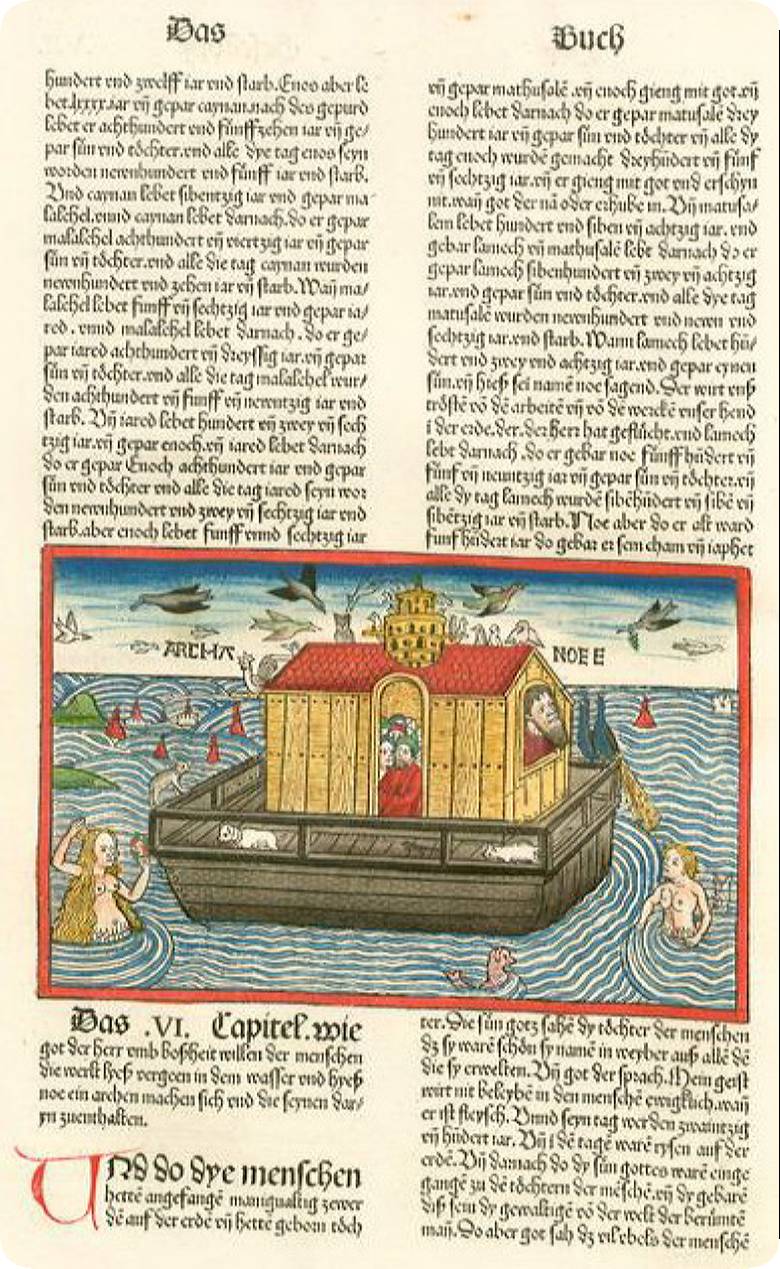 Das
Buch
hundert vnd zwelff iar vnd starb. Enos aber le
bet.lxxxx.iar vñ gepar caynan.nach des gepurd
lebet er achthundert vnd fünffzehen iar vñ ge/
par sün vnd töchter.vnd alle dye tag enos seyn
worden newenhundert vnd fünff iar vnd starb.
Vnd caynan lebet sibentzig iar vnd gepar ma
lalehel.vnnd caynan lebet darnach.do er gepar
malalehel achthundert vñ viertzig iar vñ gepar
sün vñ töchter.vnd alle die tag caynan wurden
newenhundert vnd zehen iar vñ starb. Wañ ma/
lalehel lebet funff vñ sechtzig iar vnd gepar ia/
red . vnnd malalehel lebet darnach . do er ge/
par iared achthundert vñ dreyssig iar.vñ gepar
sün vñ töchter.vnd alle die tag malalehel wur/
den achthundert vñ funff vñ newentzig iar vnd
starb. Vñ iared lebet hundert vñ zwey vñ sech
tzig iar.vñ gepar enoch.vñ iared lebet darnach
do er gepar Enoch achthundert iar vnd gepar
sün vnd töchter vnd alle die tag iared seyn wor
den newenhundert vnd zwey vñ sechtzig iar vnd
starb.aber enoch lebet funff vnnd sechtzig iar
vñ gepar mathusalē .vñ enoch gieng mit got.vñ
enoch lebet darnach do er gepar matusalē drey
hundert iar vñ gepar sün vnd töchter vñ alle dy
tag enoch wurdē gemacht dreyhūdert vñ fünf
vñ sechtzig iar.vñ er gieng mit got vnd erschyn
nit.wañ got der nā oder erhube in. Vñ matusa/
lem lebet hundert vnd siben vñ achtzig iar. vnd
gebar lamech vñ mathusalē lebt darnach do er
gepar lamech sibenhundert vñ zwey vñ achtzig
iar.vnd gepar sün vnd töchter.vnd alle dye tag
matusalē wurden newenhundert vnd newn vnd
sechtzig iar.vnd starb. Wann lamech lebet hū/
dert vnd zwey vnd achtzig iar.vnd gepar eynen
sün.vñ hieß sei namē noe sagend. Der wirt vnß
tröstē vō dē arbeitē vñ vō dē werckē vnser hend
i der erde.der.der herr hat geflücht.vnd lamech
lebt darnach .do er gebar noe fünffhūdert vñ
fünf vñ neuntzig iar vñ gepar sün vñ töchter.vñ
alle dy tag lamech wurdē sibēhūdert vñ sibē vñ
sibētzig iar vñ starb. Noe aber do er alt ward
funfhūdert iar do gebar er sem cham vñ iaphet
ARCHA NOEE
Das .VI. Capitel.wie
got der herr vmb boßheit willen der menschen
die werlt lyeß vergeen in dem wasser vnd hyeß
noe ein archen machen sich vnd die seynen dar/
yn zuenthalten.
UNd do dye menschen
hettē angefangē manigualtig zewer
dē auf der erdē vñ hettē geborn töch
ter. Die sün gotz sahē dy töchter der menschen
dz sy warē schön sy namē in weyber auß allē dē
die sy erwelten. Vñ got der sprach. Mein geist
wirt nit beleybē in den menschē ewigklich.wañ
er ist fleysch. Vnnd seyn tag werden zwaintzig
vñ hūdert iar. Vñ i dē tagē warē rysen auf der
erdē. Vñ darnach do dy sün gottes warē einge
gangē zu dē töchtern der mēschē.vñ dy gebarē
diß sein dy gewaltigē vō der welt der berümtē
mañ. Do aber got sah dz vil vbels der menschē